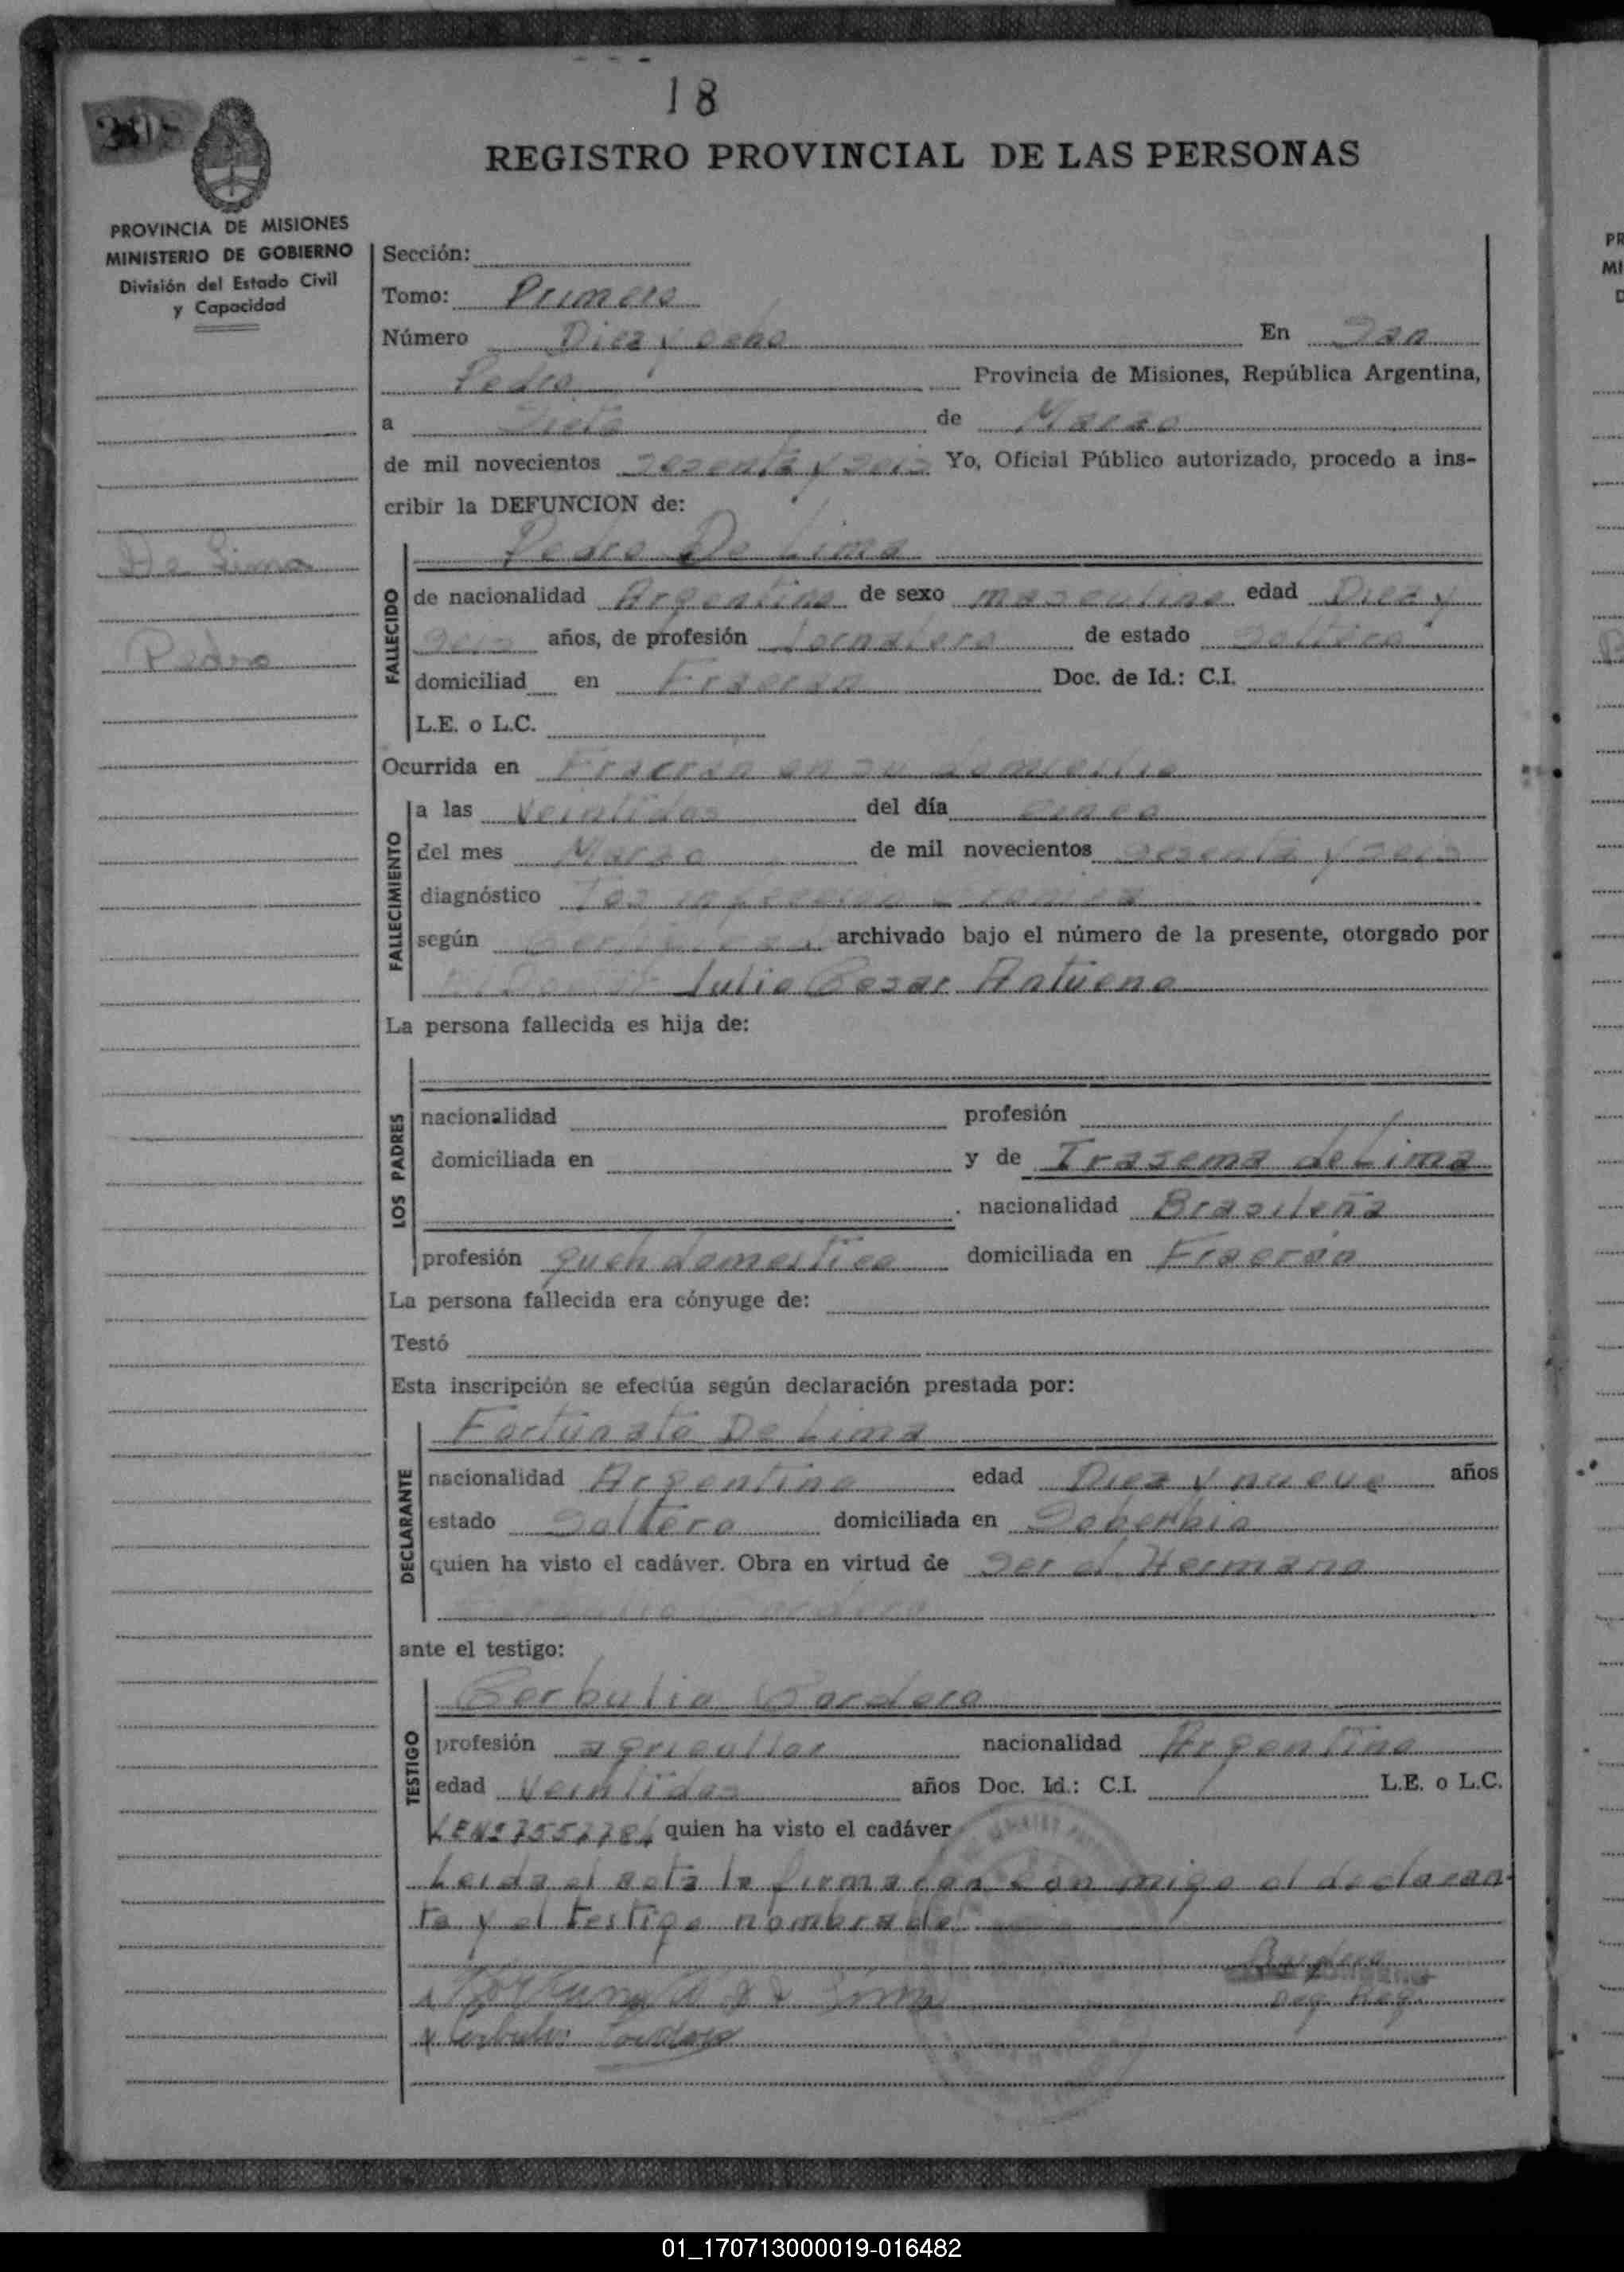 18
REGISTRO PROVINCIAL DE LAS PERSONAS
PROVINCIA DE MISIONES
MINISTERIO DE GOBIERNO
División del Estado Civil
y Capacidad
Sección:
Tomo: Primero
Número Diez y ocho En San
Pedro Provincia de Misiones, República Argentina,
a de Marzo
de mil novecientos sesenta y seis Yo, Oficial Público autorizado, procedo a ins-
cribir la DEFUNCION de:
Pedro De Lima
De Lima
Pedro
FALLECIDO
de nacionalidad Argentina de sexo masculino edad Diez y
seis años, de profesión Jornalero de estado Soltero
domiciliad en Fracran Doc. de Id.: C.I.
L.E. o L.C.
Ocurrida en Fracran en su domicilio
FALLECIMIENTO
a las Veintidos del día cinco
del mes Marzo de mil novecientos sesenta y seis
diagnóstico
según archivado bajo el número de la presente, otorgado por
Julio Cesar Antueno
La persona fallecida es hija de:
LOS PADRES
nacionalidad profesión
domiciliada en y de Irasema de Lima
nacionalidad Brasileña
profesión queh domestico domiciliada en Fracran
La persona fallecida era cónyuge de:
Testó
Esta inscripción se efectúa según declaración prestada por:
DECLARANTE
Fortunato De Lima
nacionalidad Argentino edad Diez y nueve años
estado Soltero domiciliada en Soberbio
quien ha visto el cadáver. Obra en virtud de Ser el Hermano
ante el testigo:
TESTIGO
Cerbulio Cordero
profesión agricultor nacionalidad Argentino
edad Veintidos años Doc. Id.: C.I. L.E. o L.C.
LENº quien ha visto el cadáver
Leida el acta la firmaron con migo el declaran-
te y el testigo nombrado
01_170713000019-016482